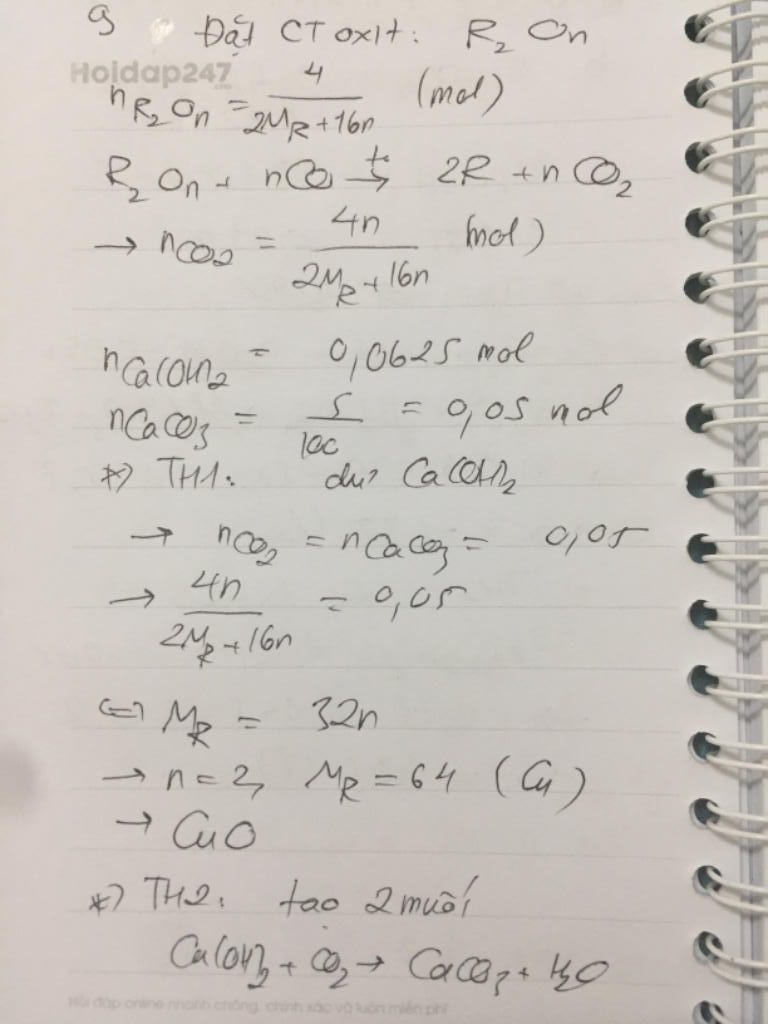 9 Đặt CT oxit: R₂On
Hoidap247
nR₂On = 4/(2M_R+16n) (mol)
R₂On + nCO →(t°) 2R + nCO₂
→ nCO₂ = 4n/(2M_R+16n) (mol)
nCa(OH)₂ = 0,0625 mol
nCaCO₃ = 5/100 = 0,05 mol
*) TH1: dư Ca(OH)₂
→ nCO₂ = nCaCO₃ = 0,05
→ 4n/(2M_R+16n) = 0,05
⇔ M_R = 32n
→ n=2, M_R=64 (Cu)
→ CuO
*) TH2: tạo 2 muối
Ca(OH)₂ + CO₂ → CaCO₃ + H₂O
Hỏi đáp online nhanh chóng, chính xác và luôn miễn phí